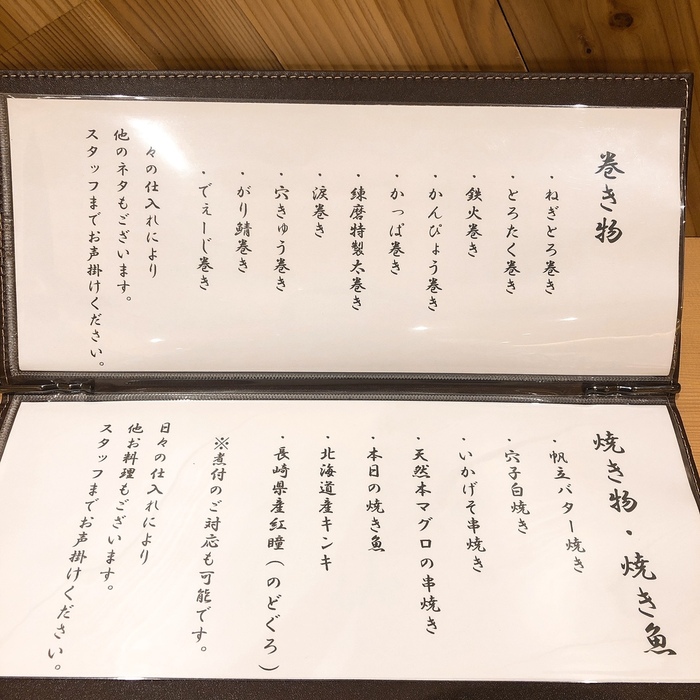 巻き物
・ねぎとろ巻き
・とろたく巻き
・鉄火巻き
・かんぴょう巻き
・かっぱ巻き
・練磨特製太巻き
・涙巻き
・穴きゅう巻き
・がり鯖巻き
・でぇーじ巻き
々の仕入れにより
他のネタもございます。
スタッフまでお声掛けください。
焼き物・焼き魚
・帆立バター焼き
・穴子白焼き
・いかげそ串焼き
・天然本マグロの串焼き
・本日の焼き魚
・北海道産キンキ
・長崎県産紅瞳(のどぐろ)
※煮付のご対応も可能です。
日々の仕入れにより
他お料理もございます。
スタッフまでお声掛けください。